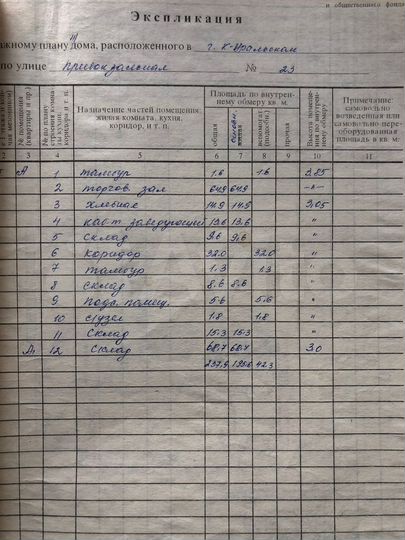 и общественного фонда
Экспликация
ажному плану дома, расположенного в г. К-Уральском
по улице Привокзальная № 23
№ помещения (квартиры и пр.)
№ по плану строения комнаты, кухни, коридора и т. п.
Назначение частей помещения: жилая комната, кухня, коридор, и т. п.
Площадь по внутреннему обмеру кв. м.
общая
основн.
жилая
вспомогат. (подсобн.)
прочая
Высота помещения по внутреннему обмеру
Примечание: самовольно возведенная или самовольно переоборудованная площадь в кв. м.
2 3 4 5 6 7 8 9 10 11
А 1 тамбур 1.6 1.6 2.85
2 торгов. зал 64.9 64.9 -"-
3 хлебная 14.9 14.9 3.05
4 каб-т заведующей 13.6 13.6 "
5 склад 9.6 9.6 "
6 коридор 32.0 32.0 "
7 тамбур 1.3 1.3 "
8 склад 8.6 8.6 "
9 подс. помещ. 5.6 5.6 "
10 с/узел 1.8 1.8 "
11 Склад 15.3 15.3 "
А₁ 12 Склад 68.7 68.7 3.0
237.9 195.6 42.3